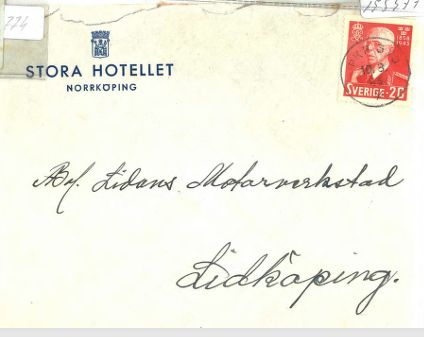 274
STORA HOTELLET
NORRKÖPING
1858
1943
SVERIGE 20
A.B. Lidans Motorverkstad
Lidköping.